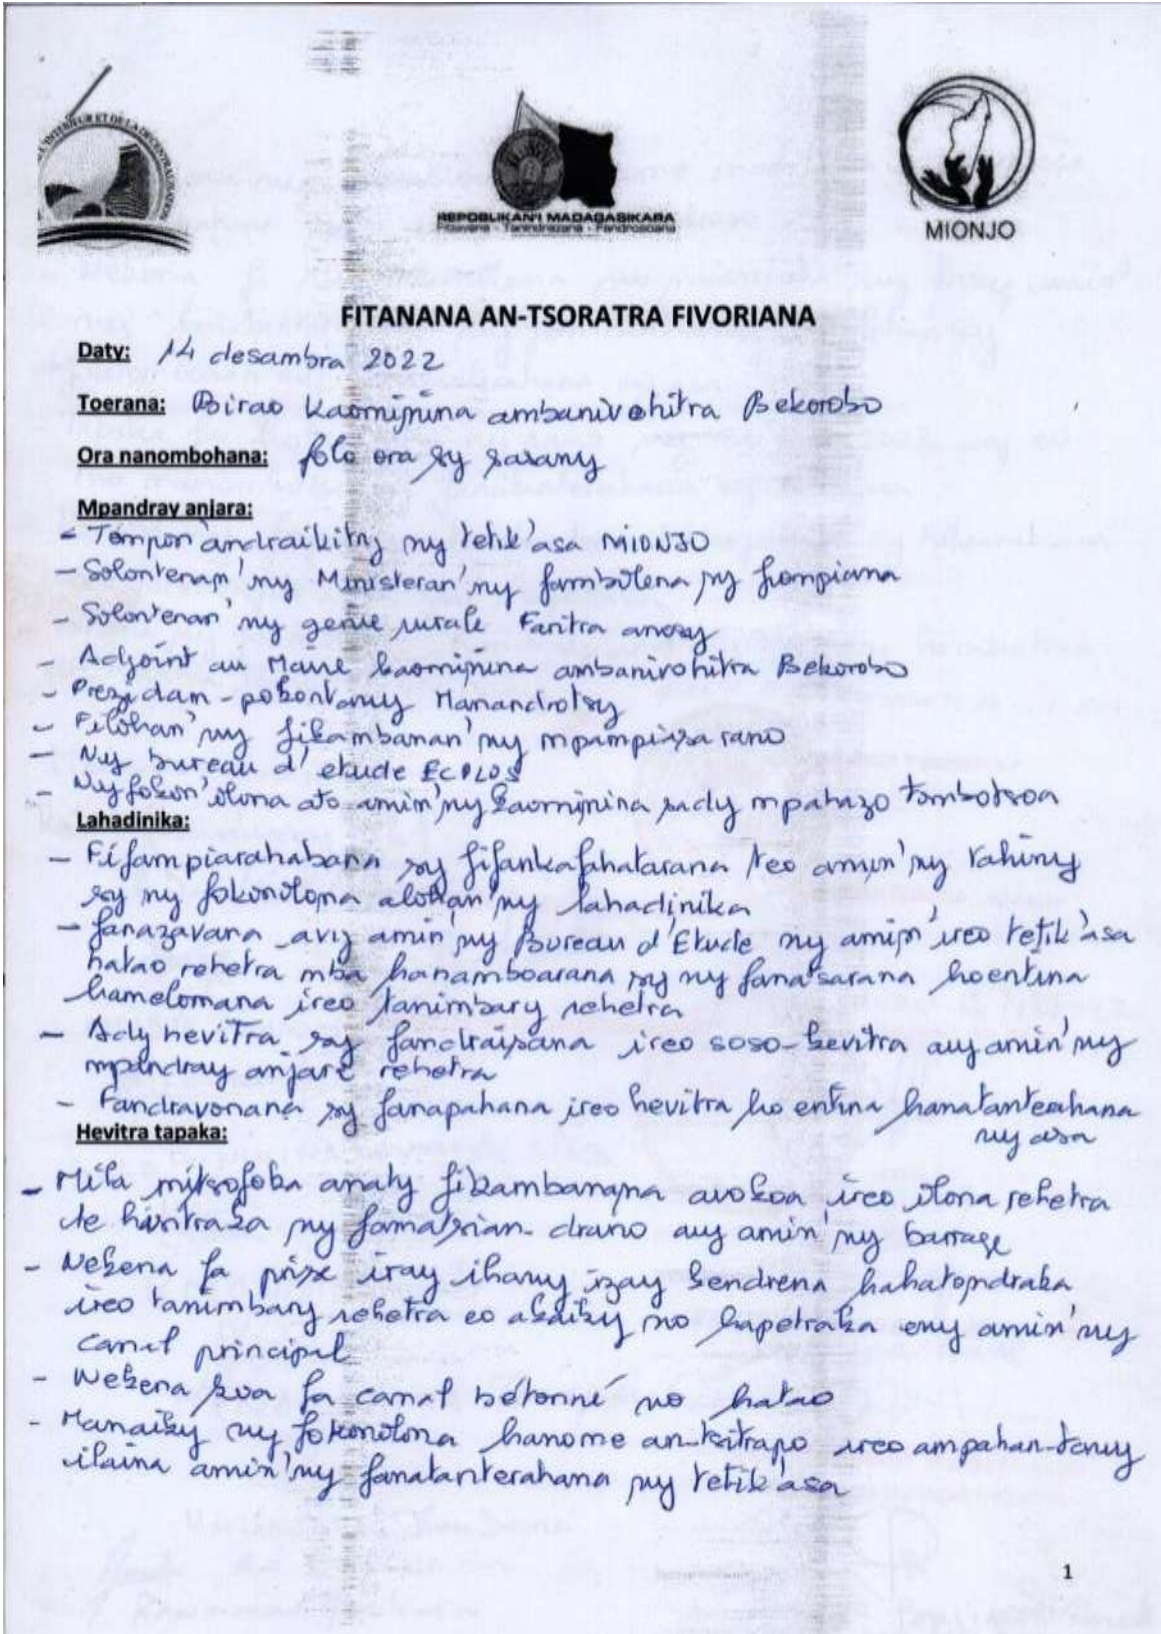 L'INTERIEUR ET DE LA DECENTRALISATION
REPOBLIKAN'I MADAGASIKARA
Fitiavana - Tanindrazana - Fandrosoana
MIONJO
FITANANA AN-TSORATRA FIVORIANA
Daty: 14 desambra 2022
Toerana: Birao kaominina ambanivohitra Bekorobo
Ora nanombohana: folo ora sy sasany
Mpandray anjara:
- Tompon'andraikitry ny tetik'asa MIONJO
- Solontenan'ny Ministeran'ny fambolena sy fiompiana
- Solontenan'ny genie rurale Faritra anosy
- Adjoint au Maire kaominina ambanivohitra Bekorobo
- Prezidam-pokontany Manandrotsy
- Filohan'ny fikambanan'ny mpampiasa rano
- Ny bureau d'etude ECPLOS
- Ny fokon'olona ato amin'ny kaominina sady mpahazo tombotsoa
Lahadinika:
- Fifampiarahabana sy fifankafahatarana teo amin'ny vahiny
sy ny fokonolona alohan'ny lahadinika
- fanazavana avy amin'ny Bureau d'Etude ny amin'ireo tetik'asa
hatao rehetra mba hanamboarana sy ny fanatsarana hoentina
hamelomana ireo tanimbary rehetra
- Ady hevitra sy fandraisana ireo soso-kevitra avy amin'ny
mpandray anjara rehetra
- Fandravonana sy fanapahana ireo hevitra ho entina hanatanterahana
ny asa
Hevitra tapaka:
- Mila mitsofoka anaty fikambanana avokoa ireo olona rehetra
te hisitraka ny famatsian-drano avy amin'ny barrage
- Nekena fa prise iray ihany izay kendrena hahatondraka
ireo tanimbary rehetra eo akaiky no hapetraka eny amin'ny
canal principal
- Nekena koa fa canal bétonné no hatao
- Manaiky ny fokonolona hanome an-tsitrapo ireo ampahan-tany
ilaina amin'ny fanatanterahana ny tetik'asa
1